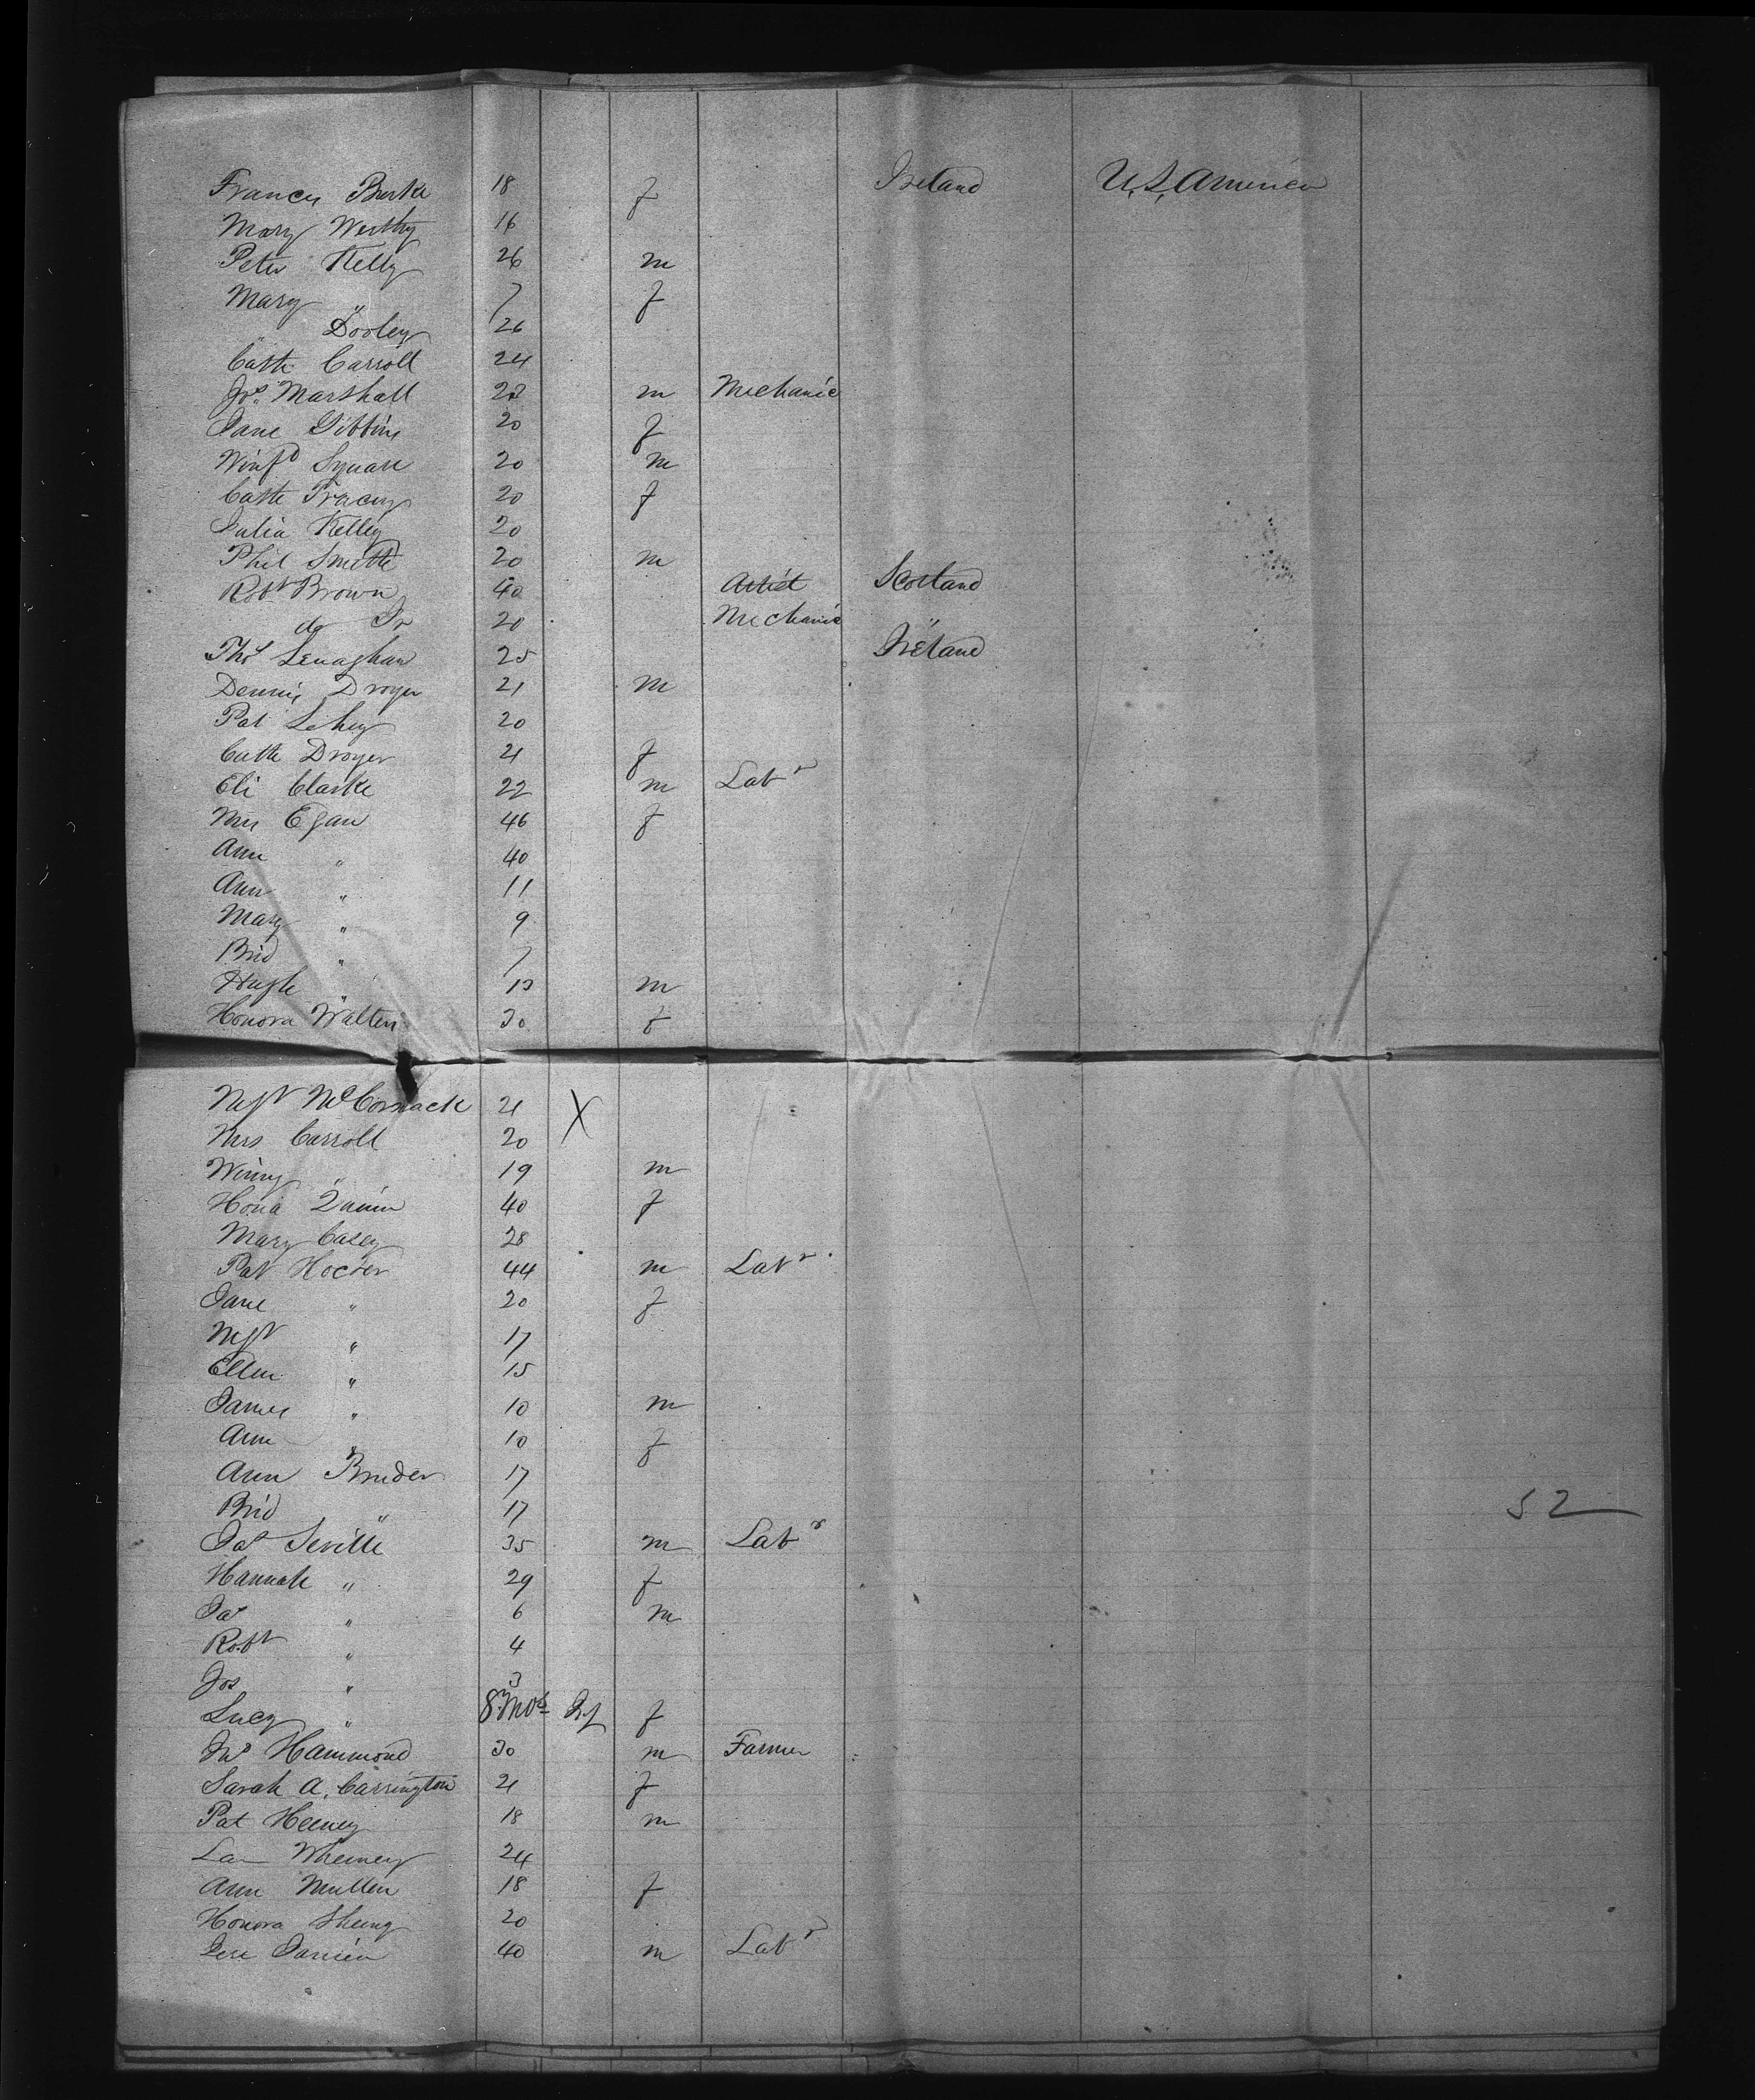 Frances Burke 18 f Ireland U.S. America
Mary Werthy 16
Peter Kelly 26 m
Mary " 7 f
" Dooley 26
Cath Carroll 24
Jos. Marshall 28 m Mechanic
Jane Gibbins 20 f
Winfd Square 20 m
Cath Tracey 20 f
Julia Kelley 20
Phil Smith 20 m
Robt Brown 40 Artist Scotland
do Jr 20 Mechanic "
Thos Lenaghan 25 Ireland
Dennis Droyer 21 m
Pat Lehey 20
Cath Droyer 21 f
Eli Clarke 22 m Labr
Mrs Egan 46 f
Ann " 40
Ann " 11
Mary " 9
Brid " 7
Hugh " 13 m
Honora Walten 30 f
Mgt McCormack 21 X
Mrs Carroll 20
Winny " 19 m
Hona Quinn 40 f
Mary Casey 28
Pat Hocter 44 m Labr
Jane " 20 f
Mgt " 17
Ellen " 15
James " 10 m
Ann " 10 f
Ann Bruder 17
Brid " 17 52
Jas Seville 35 m Labr
Hannah " 29 f
Jas " 6 m
Robt " 4
Jos " 3
Lucy " 8 Mos Inf f
Jno Hammond 30 m Farmer
Sarah A. Carrington 21 f
Pat Heeney 18 m
La 24
Ann Mullen 18 f
Honora 20
40 m Labr